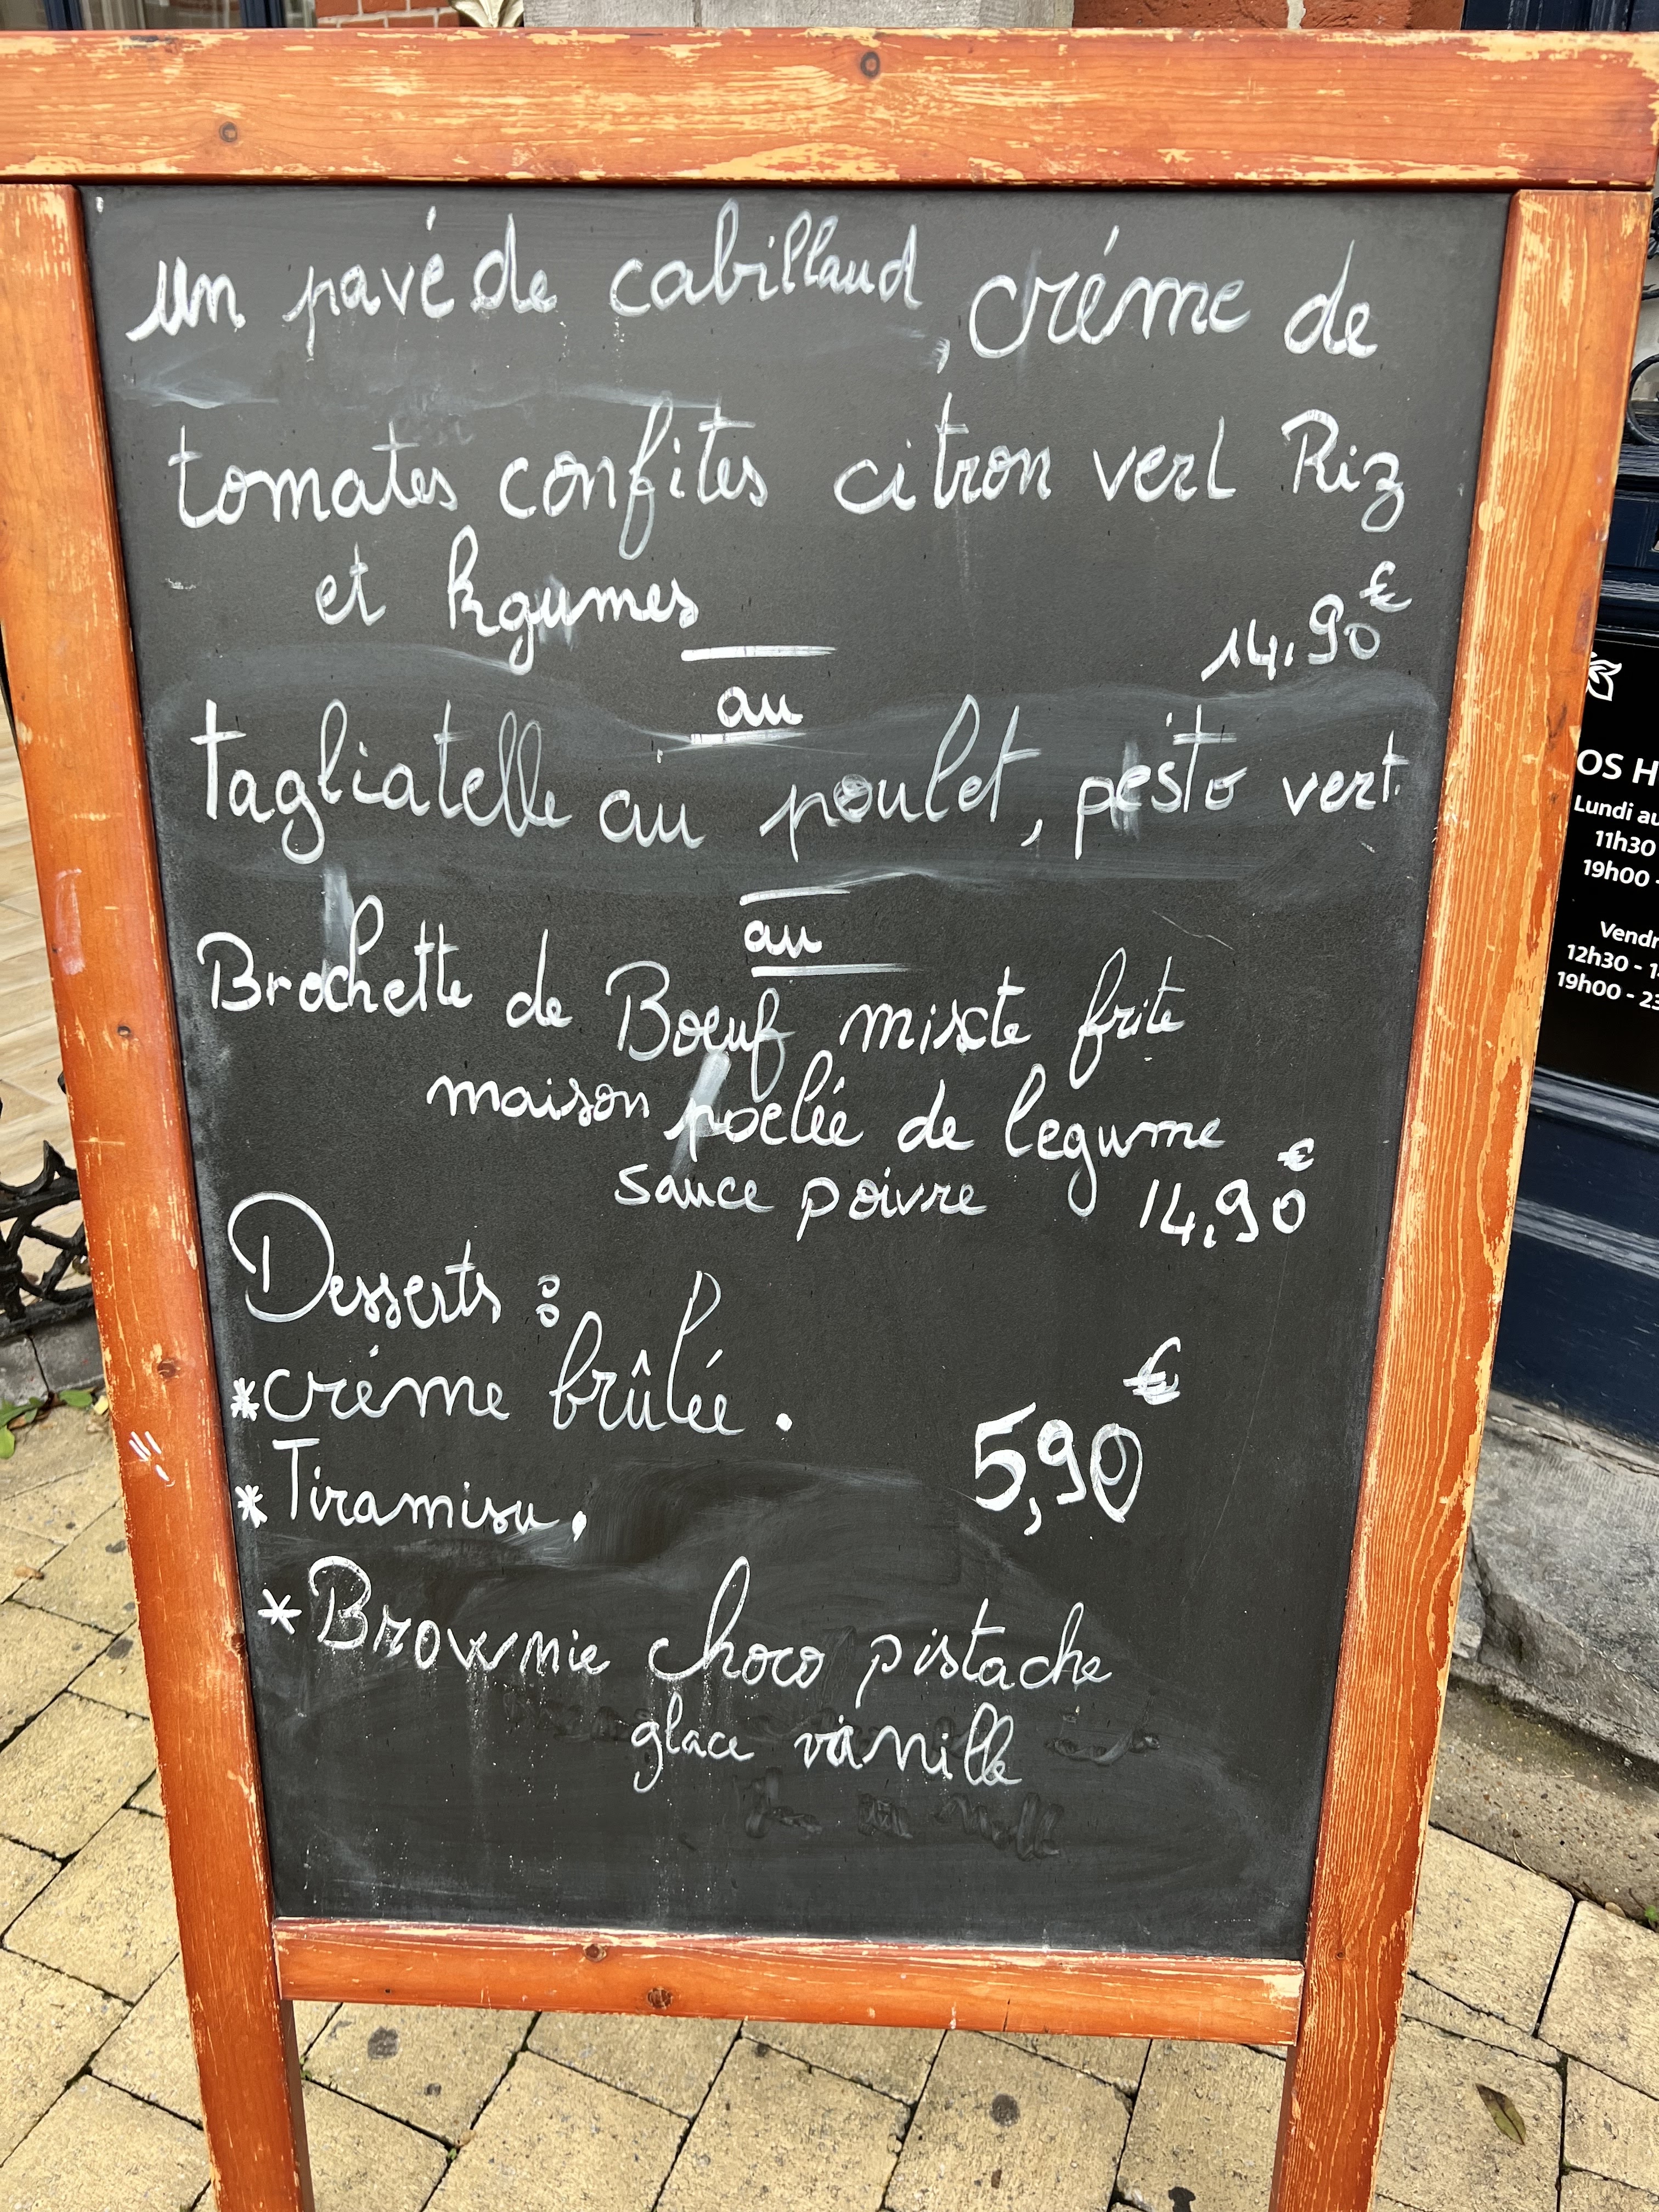 un pavé de cabillaud, créme de
tomates confites citron vert Riz
et légumes
14,90€
au
tagliatelle au poulet, pesto vert
au
Brochette de Boeuf mixte frite
maison poelée de legume
sauce poivre 14,90€
Desserts :
*créme brûlée.
5,90€
*Tiramisu.
*Brownie choco pistache
glace vanille
OS H
Lundi au
11h30
19h00 -
Vendr
12h30 - 1
19h00 - 23